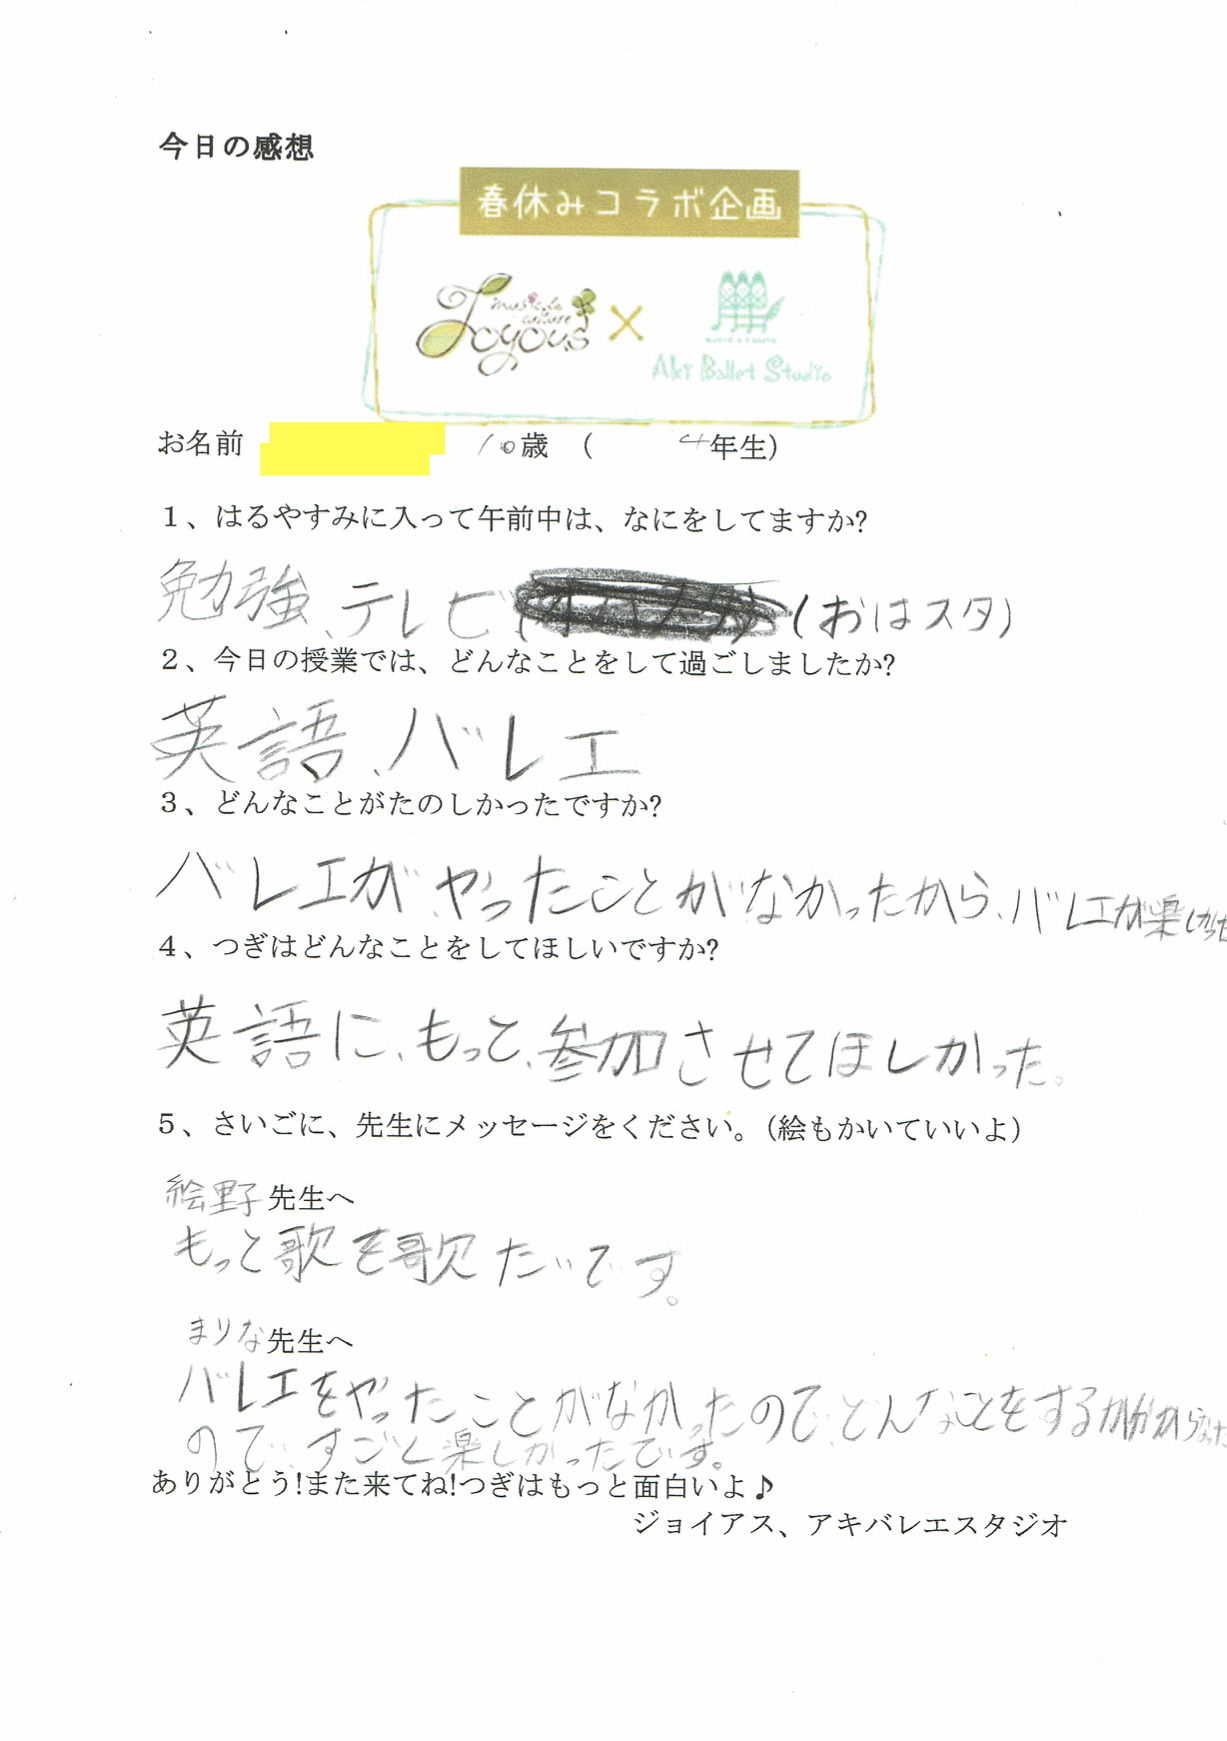 今日の感想
春休みコラボ企画
music & culture
Joyous × Aki Ballet Studio
お名前 10歳 （ 4年生）
１、はるやすみに入って午前中は、なにをしてますか?
勉強、テレビ（おはスタ）
２、今日の授業では、どんなことをして過ごしましたか?
英語、バレエ
３、どんなことがたのしかったですか?
バレエが、やったことがなかったから、バレエが楽しかった
４、つぎはどんなことをしてほしいですか?
英語に、もっと、参加させてほしかった。
５、さいごに、先生にメッセージをください。（絵もかいていいよ）
絵野先生へ
もっと歌を歌たいです。
まりな先生へ
バレエをやったことがなかったので、どんなことをするか分からなかった
ので、すごく楽しかったです。
ありがとう!また来てね!つぎはもっと面白いよ♪
ジョイアス、アキバレエスタジオ